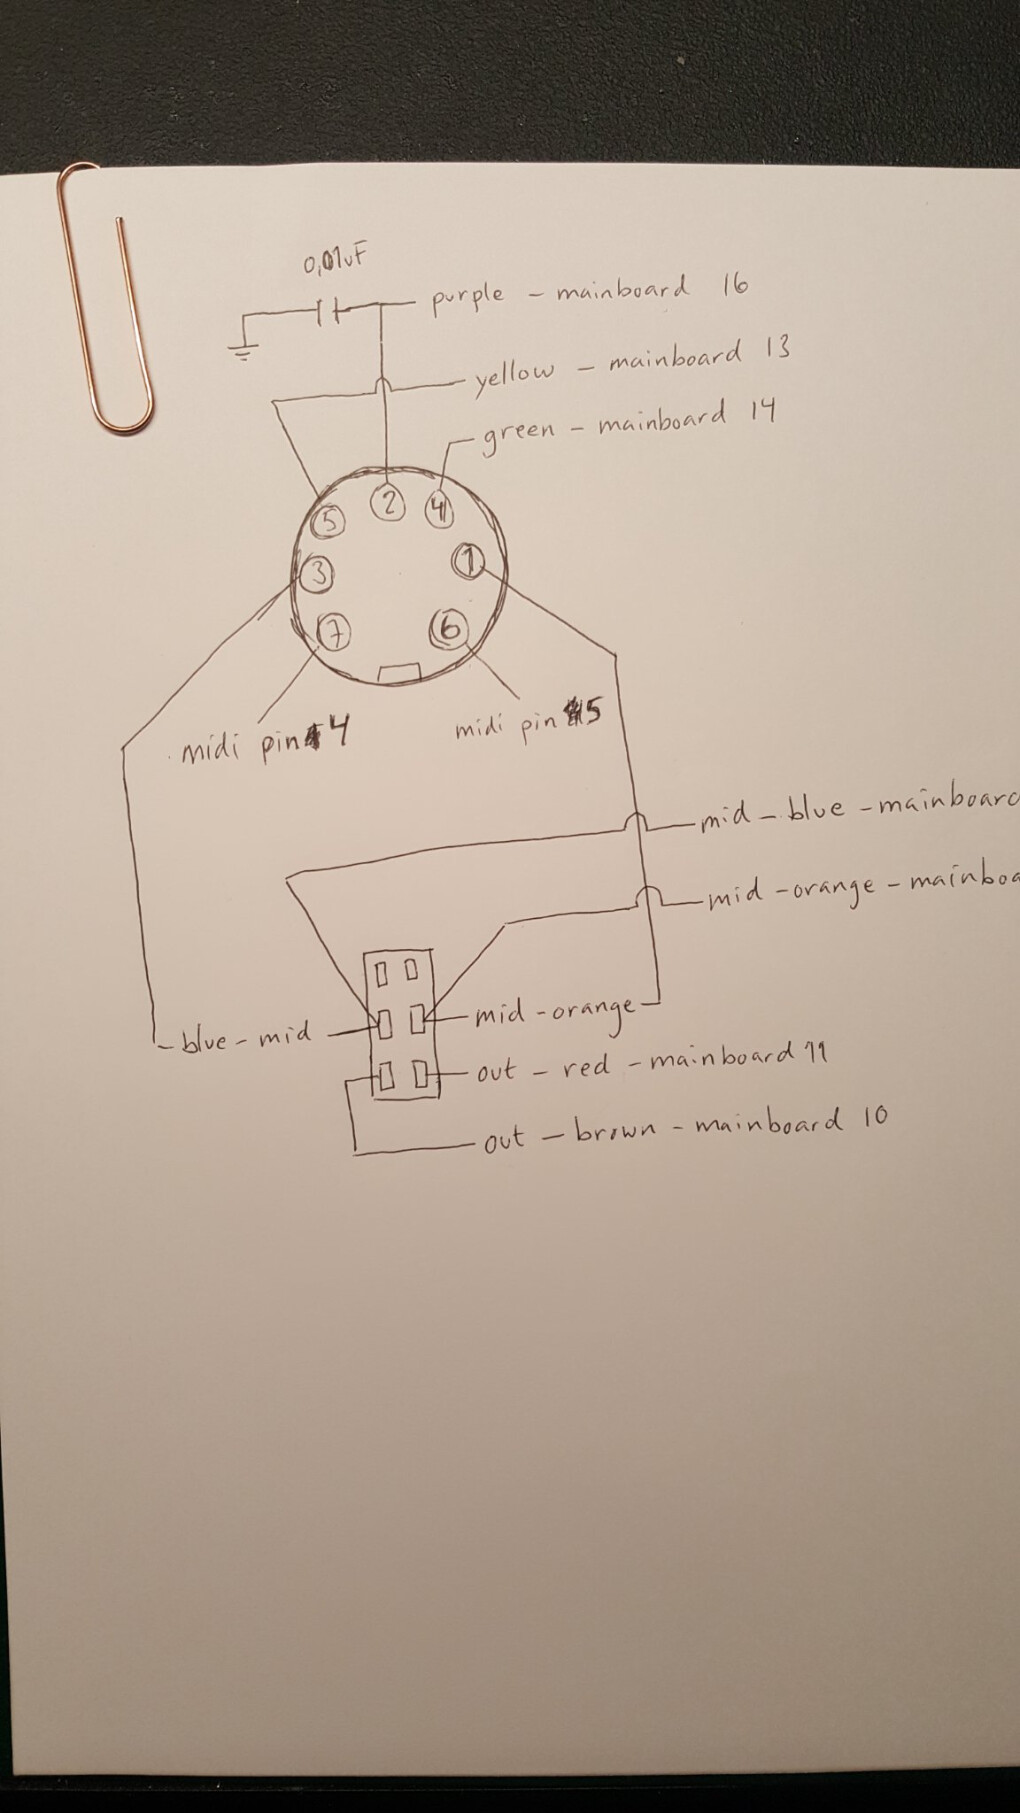 0,01uF
purple - mainboard 16
yellow - mainboard 13
green - mainboard 14
5 2 4
3 1
7 6
midi pin 4
midi pin 5
mid - blue - mainboard
mid - orange - mainboa
blue - mid
mid - orange
out - red - mainboard 11
out - brown - mainboard 10